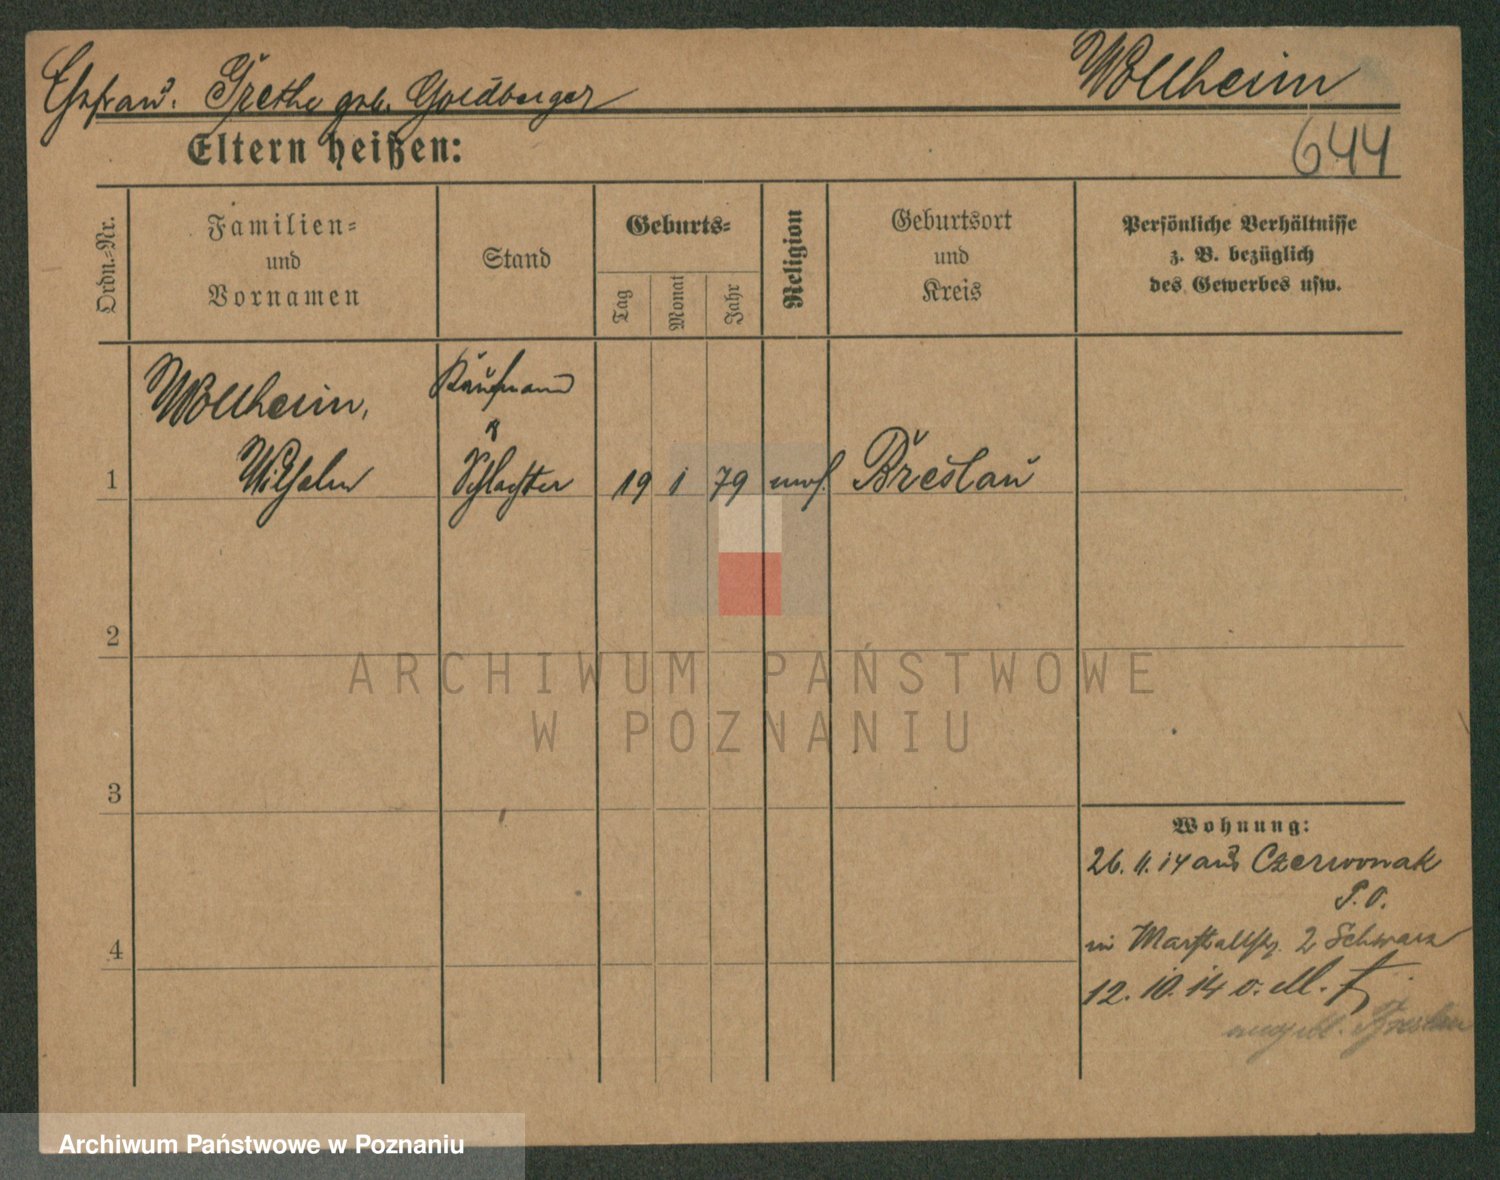 Wollheim
Ehefrau. Grethe geb. Goldberger
644
Eltern heißen:
Ordn.-Nr.
Familien-
und
Vornamen
Stand
Geburts-
Tag
Monat
Jahr
Religion
Geburtsort
und
Kreis
Persönliche Verhältnisse
z. B. bezüglich
des Gewerbes usw.
1
Wollheim,
Wilhelm
Kaufmann
Schlachter
19
1
79
mos.
Breslau
2
3
4
Wohnung:
26. 11. 14 aus Czerwonak
P. O.
in Marstallstr. 2 Schwarz
12. 10. 14
Breslau
ARCHIWUM PAŃSTWOWE
W POZNANIU
Archiwum Państwowe w Poznaniu